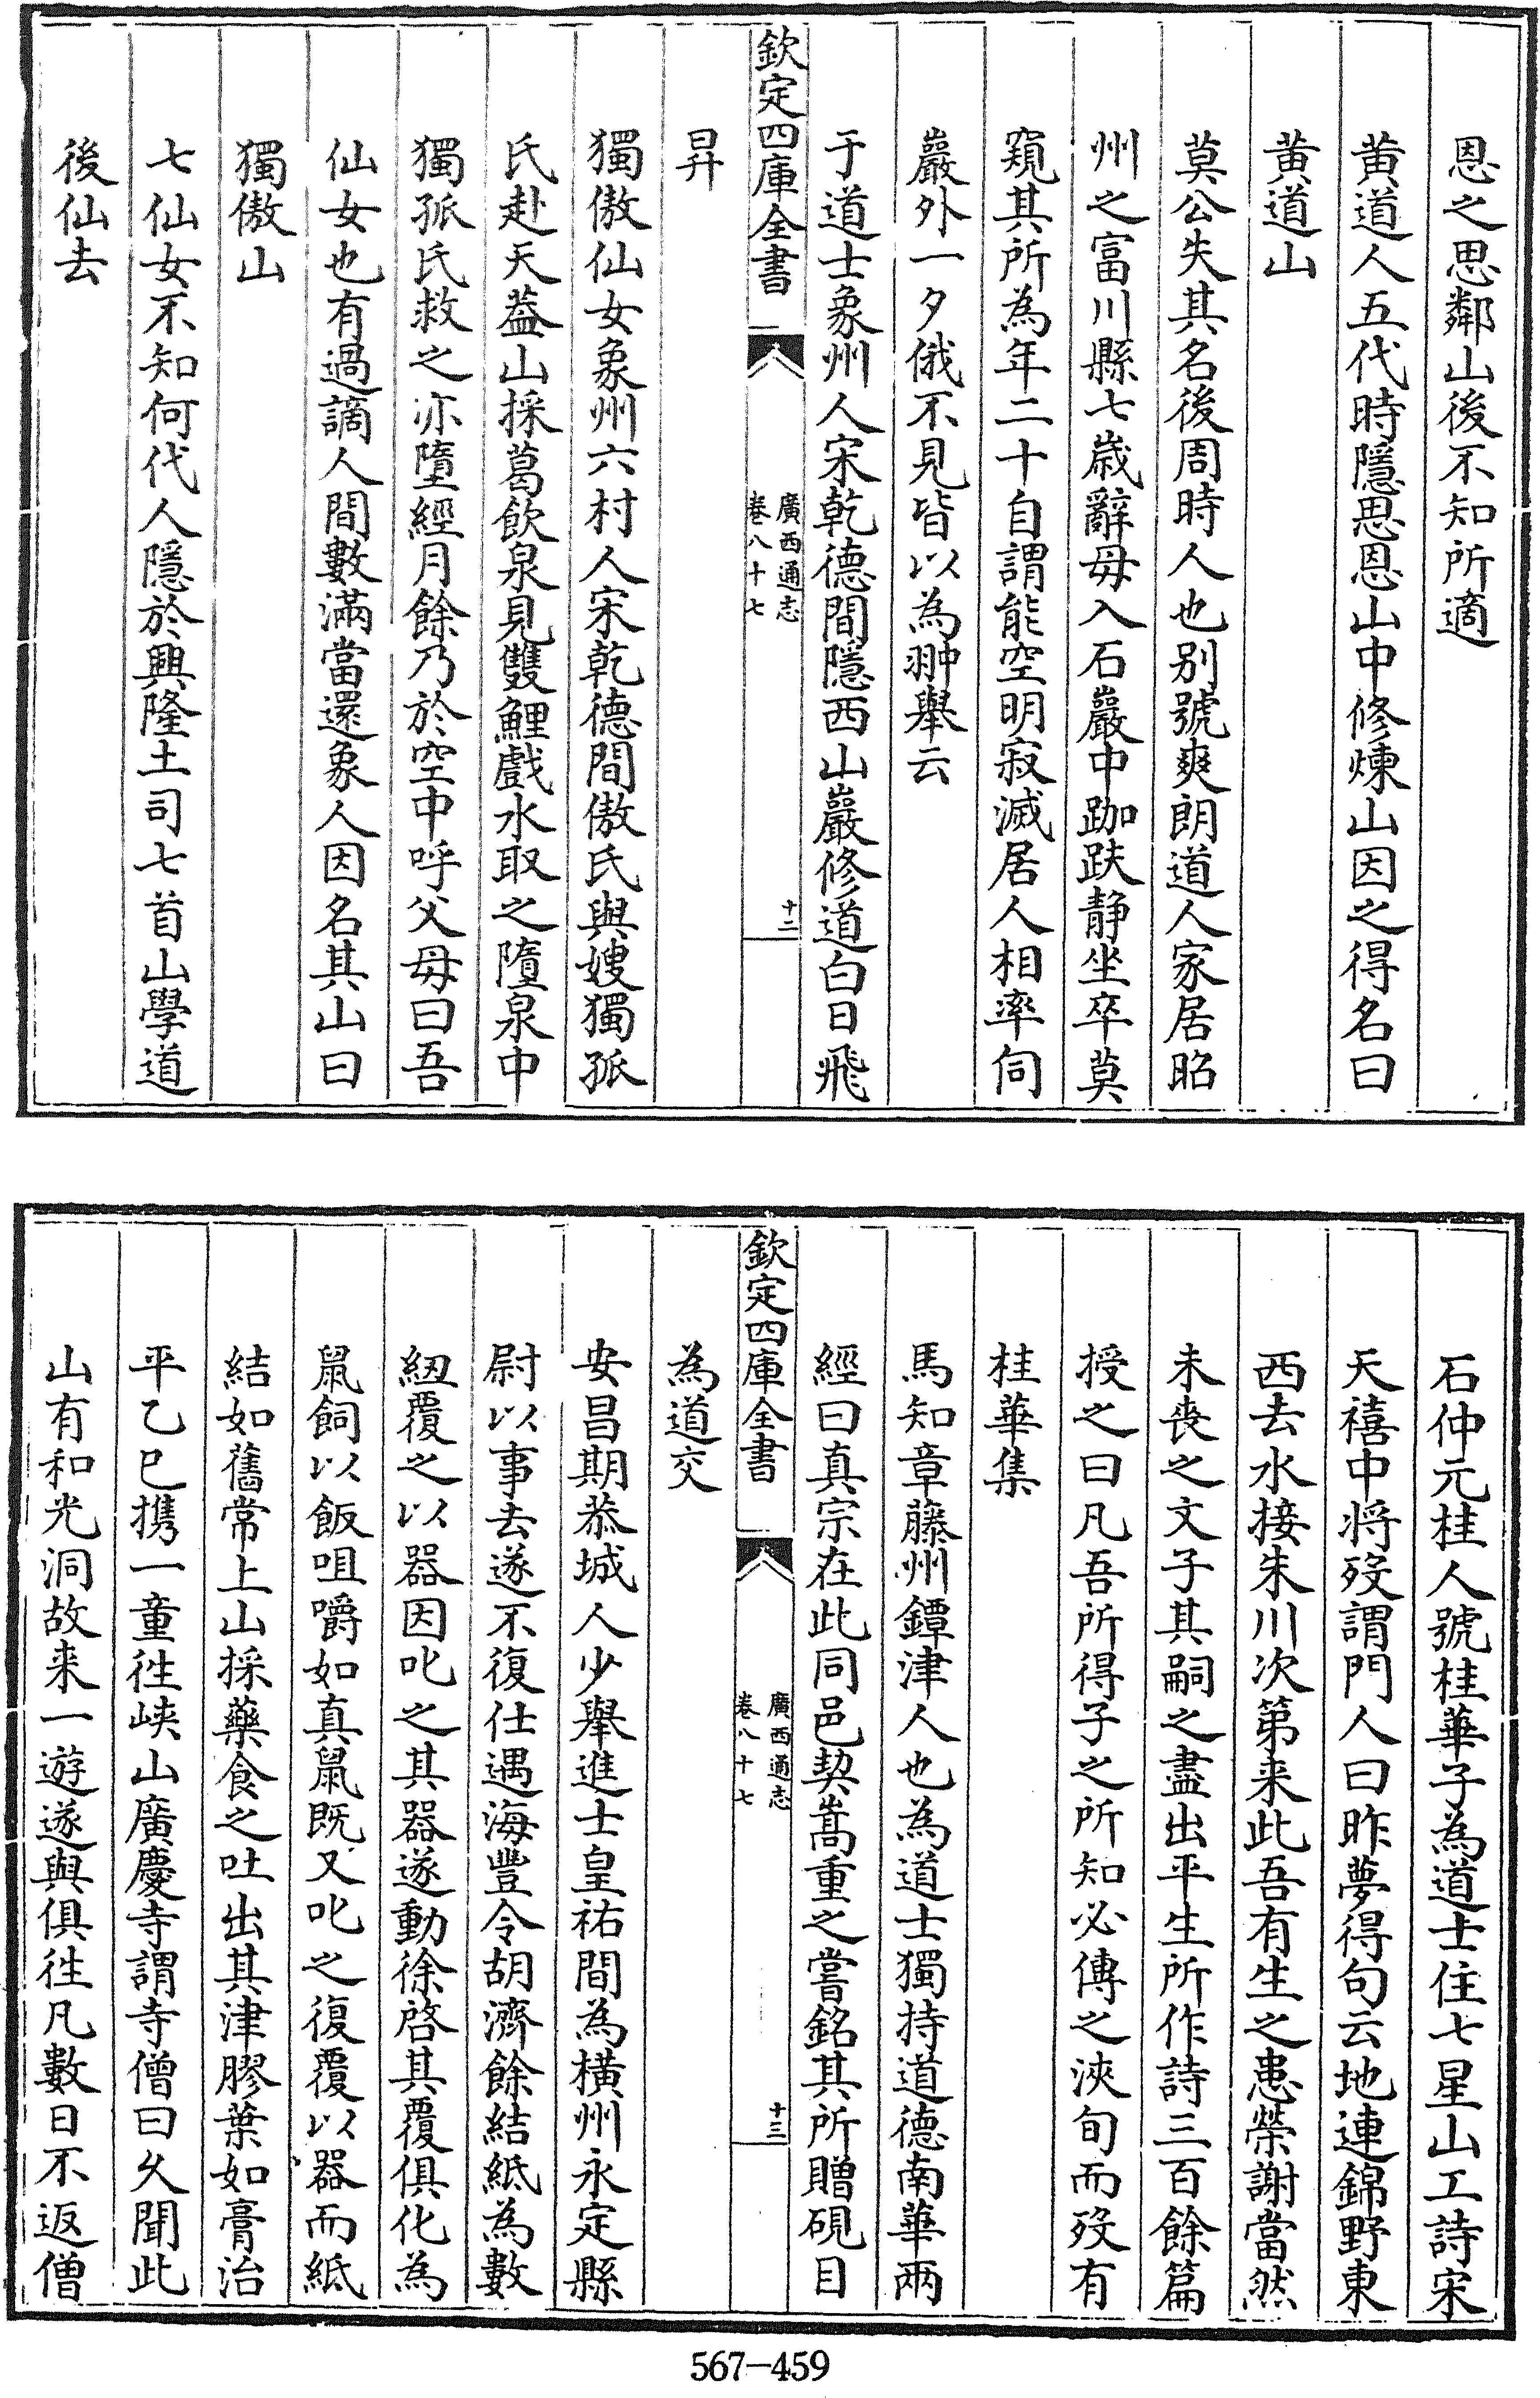 恩之思鄰山後不知所適
黄道人五代時隱思恩山中修煉山因之得名曰
黄道山
莫公失其名後周時人也别號爽朗道人家居昭
州之富川縣七歳辭母入石巖中跏趺靜坐卒莫
窺其所為年二十自謂能空明寂滅居人相率伺
巖外一夕俄不見皆以為翀舉云
于道士象州人宋乾德間隱西山巖修道白日飛
欽定四庫全書
廣西通志
卷八十七
十二
昇
獨傲仙女象州六村人宋乾德間傲氏與嫂獨孤
氏赴天葢山採葛飲泉見雙鯉戲水取之隨泉中
獨孤氏救之亦墮經月餘乃於空中呼父母曰吾
仙女也有過謫人間數滿當還象人因名其山曰
獨傲山
七仙女不知何代人隱於興隆土司七首山學道
後仙去
石仲元桂人號桂華子為道士住七星山工詩宋
天禧中将歿謂門人曰昨夢得句云地連錦野東
西去水接朱川次第来此吾有生之患榮謝當然
未喪之文子其嗣之盡出平生所作詩三百餘篇
授之曰凡吾所得子之所知必傳之浹旬而歿有
桂華集
馬知章藤州鐔津人也為道士獨持道德南華兩
經曰真宗在此同邑契嵩重之嘗銘其所贈硯目
欽定四庫全書
廣西通志
卷八十七
十三
為道交
安昌期恭城人少舉進士皇祐間為橫州永定縣
尉以事去遂不復仕遇海豐令胡濟餘結紙為數
紐覆之以器因叱之其器遂動徐啓其覆俱化為
鼠飼以飯咀嚼如真鼠既又叱之復覆以器而紙
結如舊常上山採藥食之吐出其津膠葉如膏治
平乙巳携一童徃峡山廣慶寺謂寺僧曰久聞此
山有和光洞故来一遊遂與俱徃凡數日不返僧
567—459